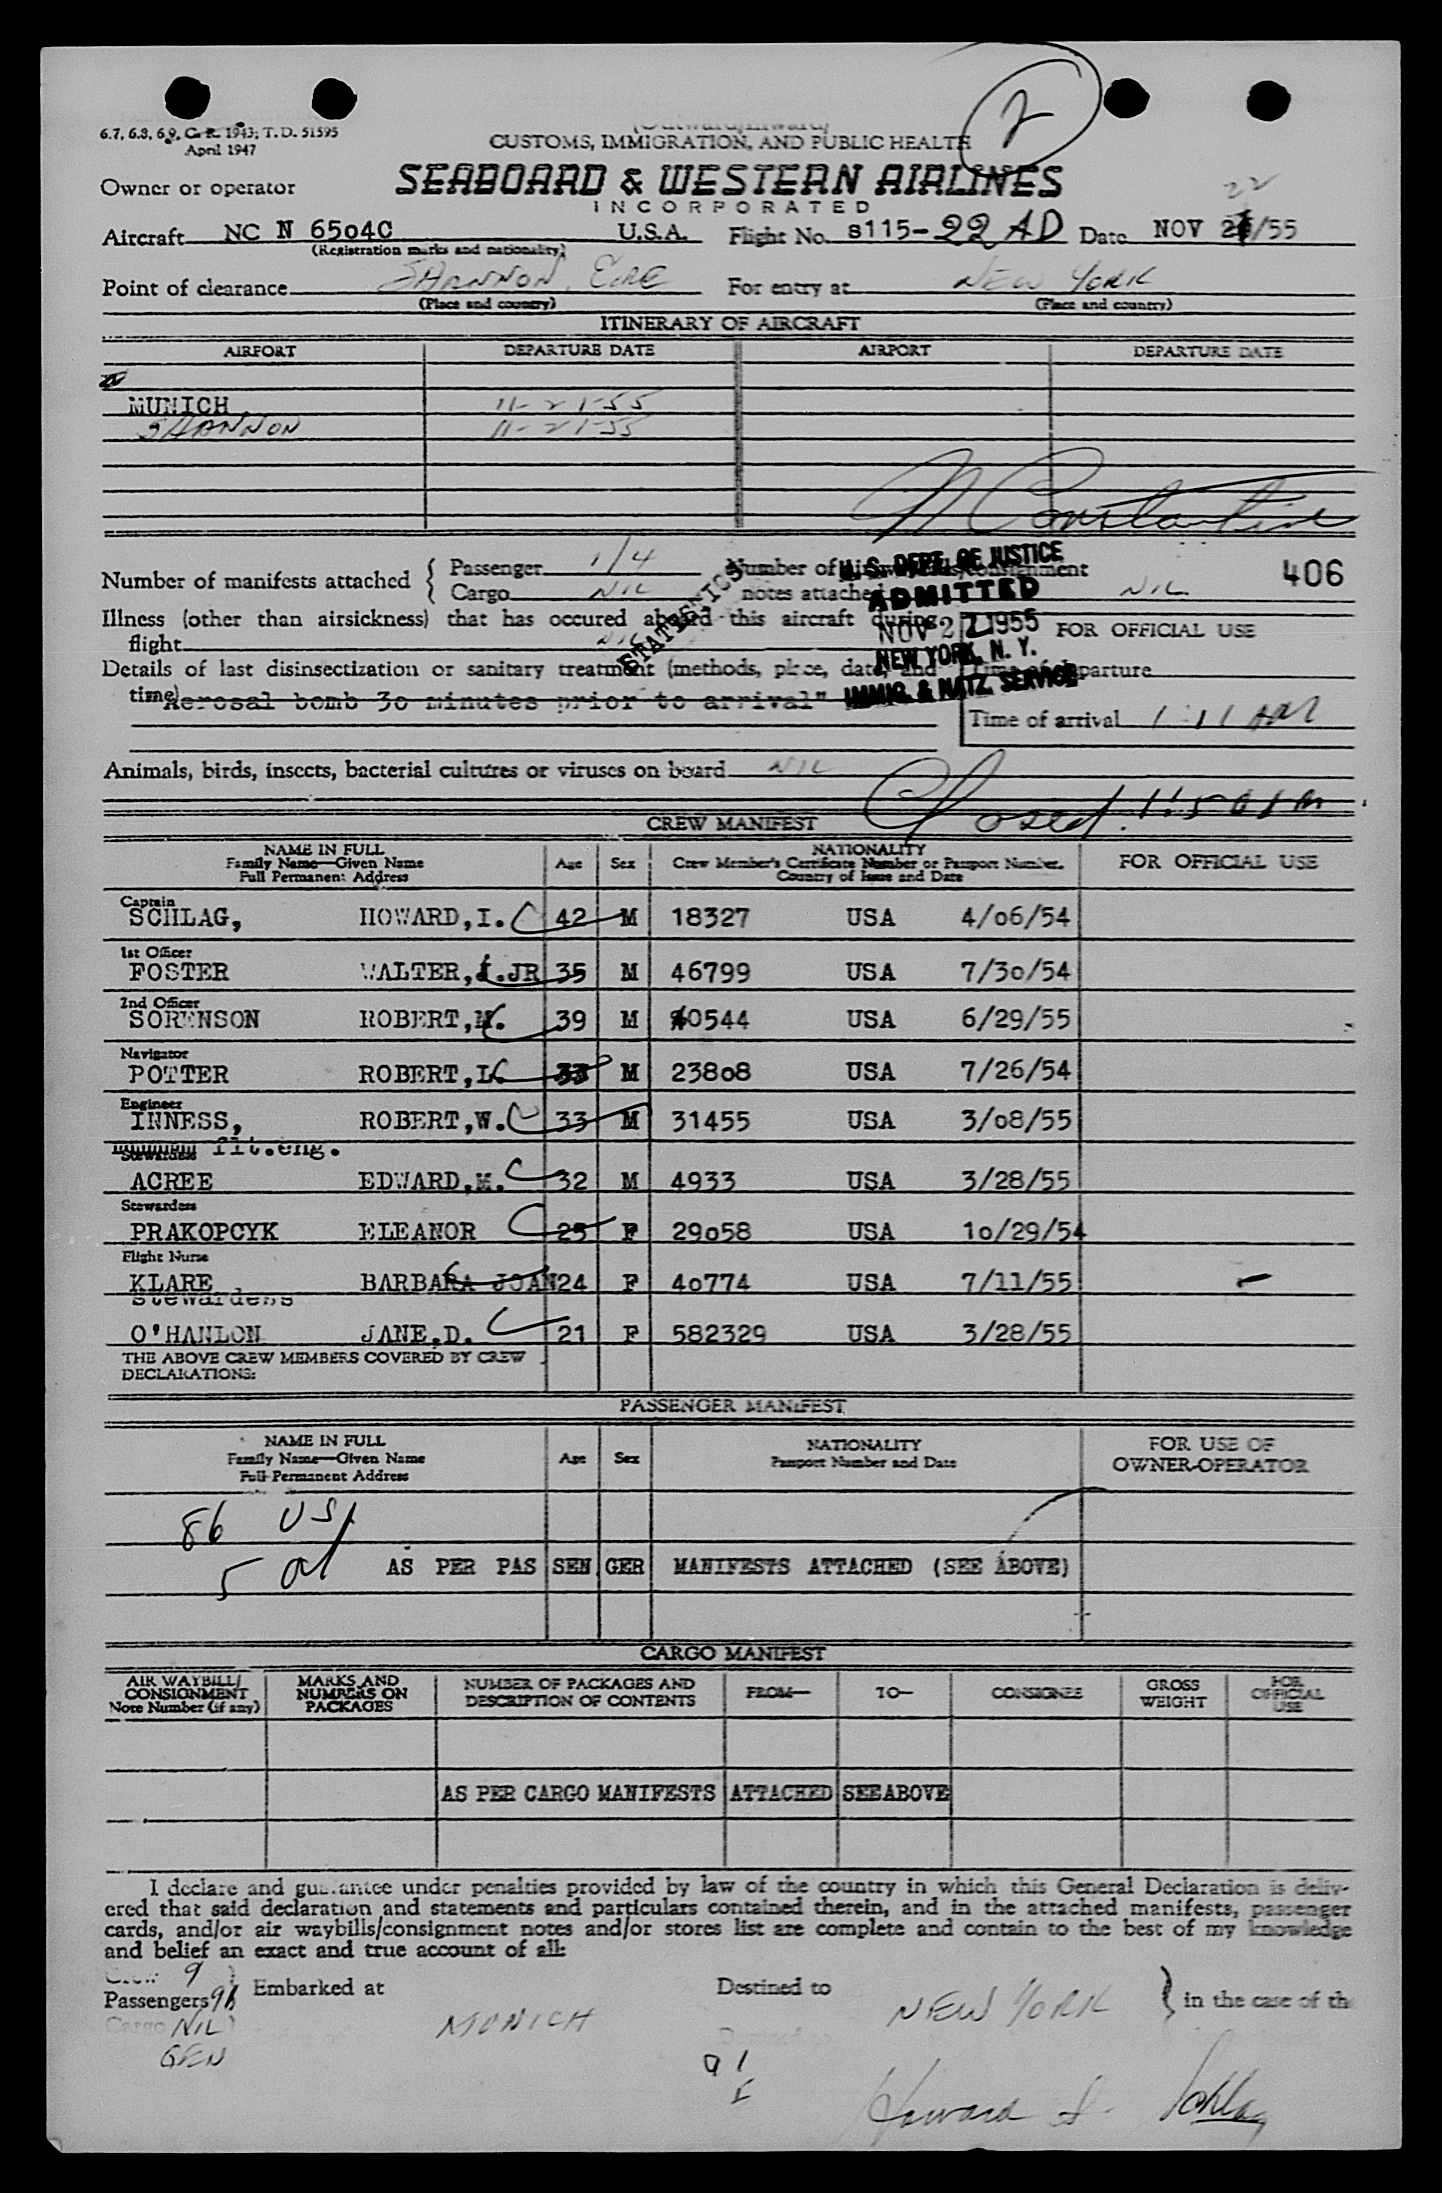 2
6.7, 6.8, 6.9, C. R. 1943; T. D. 51595
April 1947
CUSTOMS, IMMIGRATION, AND PUBLIC HEALTH
Owner or operator
SEABOARD & WESTERN AIRLINES
INCORPORATED
22
Aircraft NC N 6504C U.S.A. Flight No. s115-22 AD Date NOV 21/55
(Registration marks and nationality)
Point of clearance SHANNON, EIRE For entry at NEW YORK
(Place and country) (Place and country)
ITINERARY OF AIRCRAFT
AIRPORT DEPARTURE DATE AIRPORT DEPARTURE DATE
MUNICH 11-21-55
SHANNON 11-21-55
N Constantine
Number of manifests attached { Passenger 1/4 Number of
Cargo NIL notes attached NIL
406
STATISTICS
U. S. DEPT. OF JUSTICE
ADMITTED
NOV 22 1955
NEW YORK, N. Y.
IMMIG. & NATZ. SERVICE
Illness (other than airsickness) that has occured aboard this aircraft during
flight NIL
FOR OFFICIAL USE
Details of last disinsectization or sanitary treatment (methods, place, date, and
time) "Aerosal bomb 3o minutes prior to arrival"
Time of departure
Time of arrival 1:11 AM
Animals, birds, insects, bacterial cultures or viruses on board NIL
Closed. 1:50 Am
CREW MANIFEST
NAME IN FULL
Family Name—Given Name
Full Permanent Address
Age Sex
NATIONALITY
Crew Member's Certificate Number or Passport Number.
Country of Issue and Date
FOR OFFICIAL USE
Captain
SCHLAG, HOWARD,I. 42 M 18327 USA 4/o6/54
1st Officer
FOSTER WALTER,I.JR 35 M 46799 USA 7/3o/54
2nd Officer
SORENSON ROBERT,M. 39 M 40544 USA 6/29/55
Navigator
POTTER ROBERT,L. 33 M 238o8 USA 7/26/54
Engineer
INNESS, ROBERT,W. 33 M 31455 USA 3/o8/55
Stewardess flt.eng.
ACREE EDWARD,M. 32 M 4933 USA 3/28/55
Stewardess
PRAKOPCYK ELEANOR 25 F 29o58 USA 1o/29/54
Flight Nurse
KLARE BARBARA JOAN 24 F 4o774 USA 7/11/55
Stewardess
O'HANLON JANE,D. 21 F 582329 USA 3/28/55
THE ABOVE CREW MEMBERS COVERED BY CREW
DECLARATIONS:
PASSENGER MANIFEST
NAME IN FULL
Family Name—Given Name
Full Permanent Address
Age Sex
NATIONALITY
Passport Number and Date
FOR USE OF
OWNER-OPERATOR
86 US
5 al
AS PER PAS SEN GER MANIFESTS ATTACHED (SEE ABOVE)
CARGO MANIFEST
AIR WAYBILL/
CONSIGNMENT
Note Number (if any)
MARKS AND
NUMBERS ON
PACKAGES
NUMBER OF PACKAGES AND
DESCRIPTION OF CONTENTS
FROM—
TO—
CONSIGNEE
GROSS
WEIGHT
FOR
OFFICIAL
USE
AS PER CARGO MANIFESTS ATTACHED SEE ABOVE
I declare and guarantee under penalties provided by law of the country in which this General Declaration is deliv-
ered that said declaration and statements and particulars contained therein, and in the attached manifests, passenger
cards, and/or air waybills/consignment notes and/or stores list are complete and contain to the best of my knowledge
and belief an exact and true account of all:
Crew 9
Passengers 91 Embarked at MUNICH Destined to NEW YORK } in the case of the
Cargo NIL
GEN
91
Howard I. Schlag